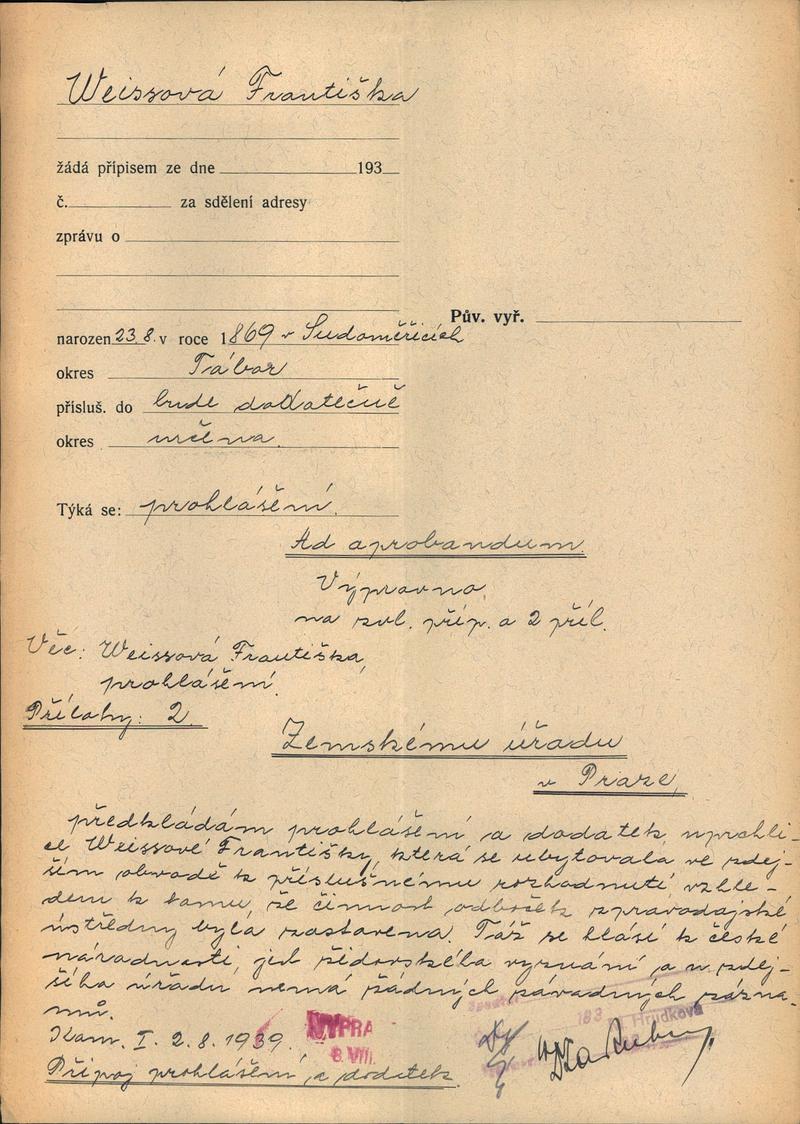 Weissová Františka
žádá přípisem ze dne 193
č. za sdělení adresy
zprávu o
Pův. vyř.
narozen 23.8. v roce 1869 v Sudoměřicích
okres Tábor
přísluš. do bude dodatečně
okres určena.
Týká se: prohlášení.
Ad aprobandum.
Výpravna
na zvl. příp. a 2 příl.
Věc: Weissová Františka,
prohlášení.
Přílohy: 2.
Zemskému úřadu
v Praze,
předkládám prohlášení a dodatek uprchli-
ce Weissové Františky, která se ubytovala ve zdej-
ším obvodě k příslušnému rozhodnutí vzhle-
dem k tomu, že činnost odboček zpravodajské
ústředny byla zastavena. Táž se hlásí k české
národnosti, jest židovského vyznání a u zdej-
šího úřadu nemá žádných závadných zázna-
mů.
Kom. I. 2.8.1939.
VYPRA
8. VIII.
193
Hrudkova
Připoj prohlášení a dodatek.